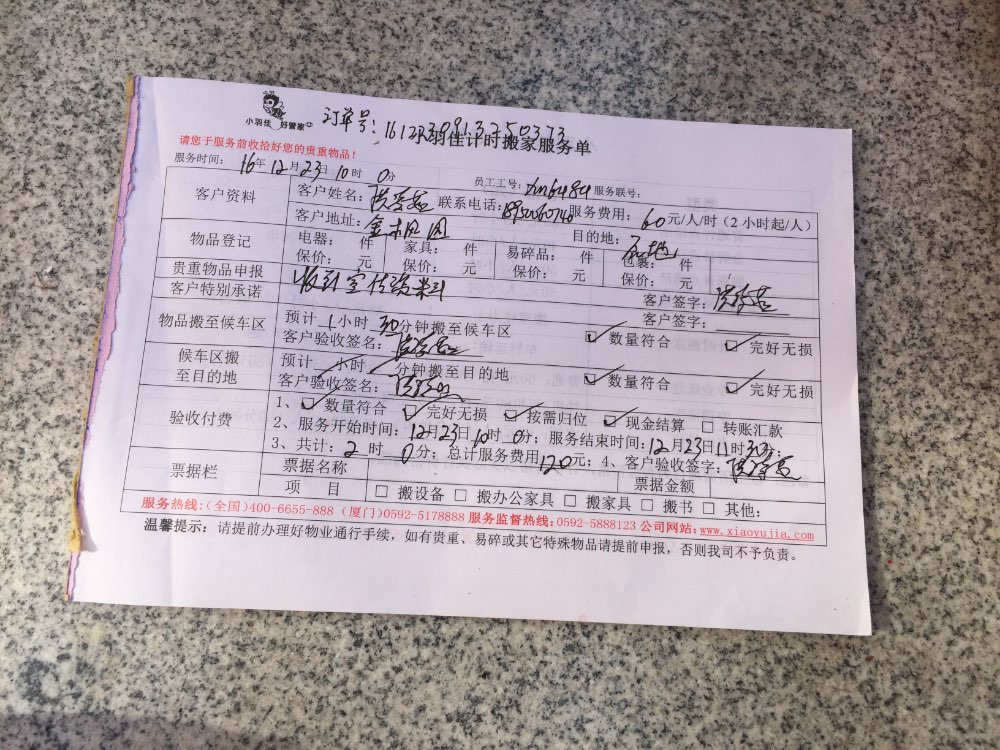 小羽佳 好管家
订单号：
小羽佳计时搬家服务单
请您于服务前收拾好您的贵重物品！
服务时间： 16年12月23日10时 0分 员工工号： 服务联号：
客户资料 客户姓名： 联系电话： 服务费用： 60元/人/时（2小时起/人）
客户地址： 目的地：
物品登记 电器： 件 家具： 件 易碎品： 件 包裹： 件
保价： 元 保价： 元 保价： 元 保价： 元
贵重物品申报 收到宣传资料 客户签字：
客户特别承诺 客户签字：
物品搬至候车区 预计 1小时 30分钟搬至候车区
客户验收签名： 数量符合 完好无损
候车区搬至目的地 预计 小时 分钟搬至目的地
客户验收签名： 数量符合 完好无损
验收付费 1、 数量符合 完好无损 按需归位 现金结算 转账汇款
2、服务开始时间：12月23日10时 0分；服务结束时间：12月23日11时30分；
3、共计：2 时 0分；总计服务费用120元；4、客户验收签字：
票据栏 票据名称 票据金额
项 目 搬设备 搬办公家具 搬家具 搬书 其他：
服务热线：（全国）400-6655-888（厦门）0592-5178888 服务监督热线：0592-5888123 公司网站：www.xiaoyujia.com
温馨提示：请提前办理好物业通行手续，如有贵重、易碎或其它特殊物品请提前申报，否则我司不予负责。